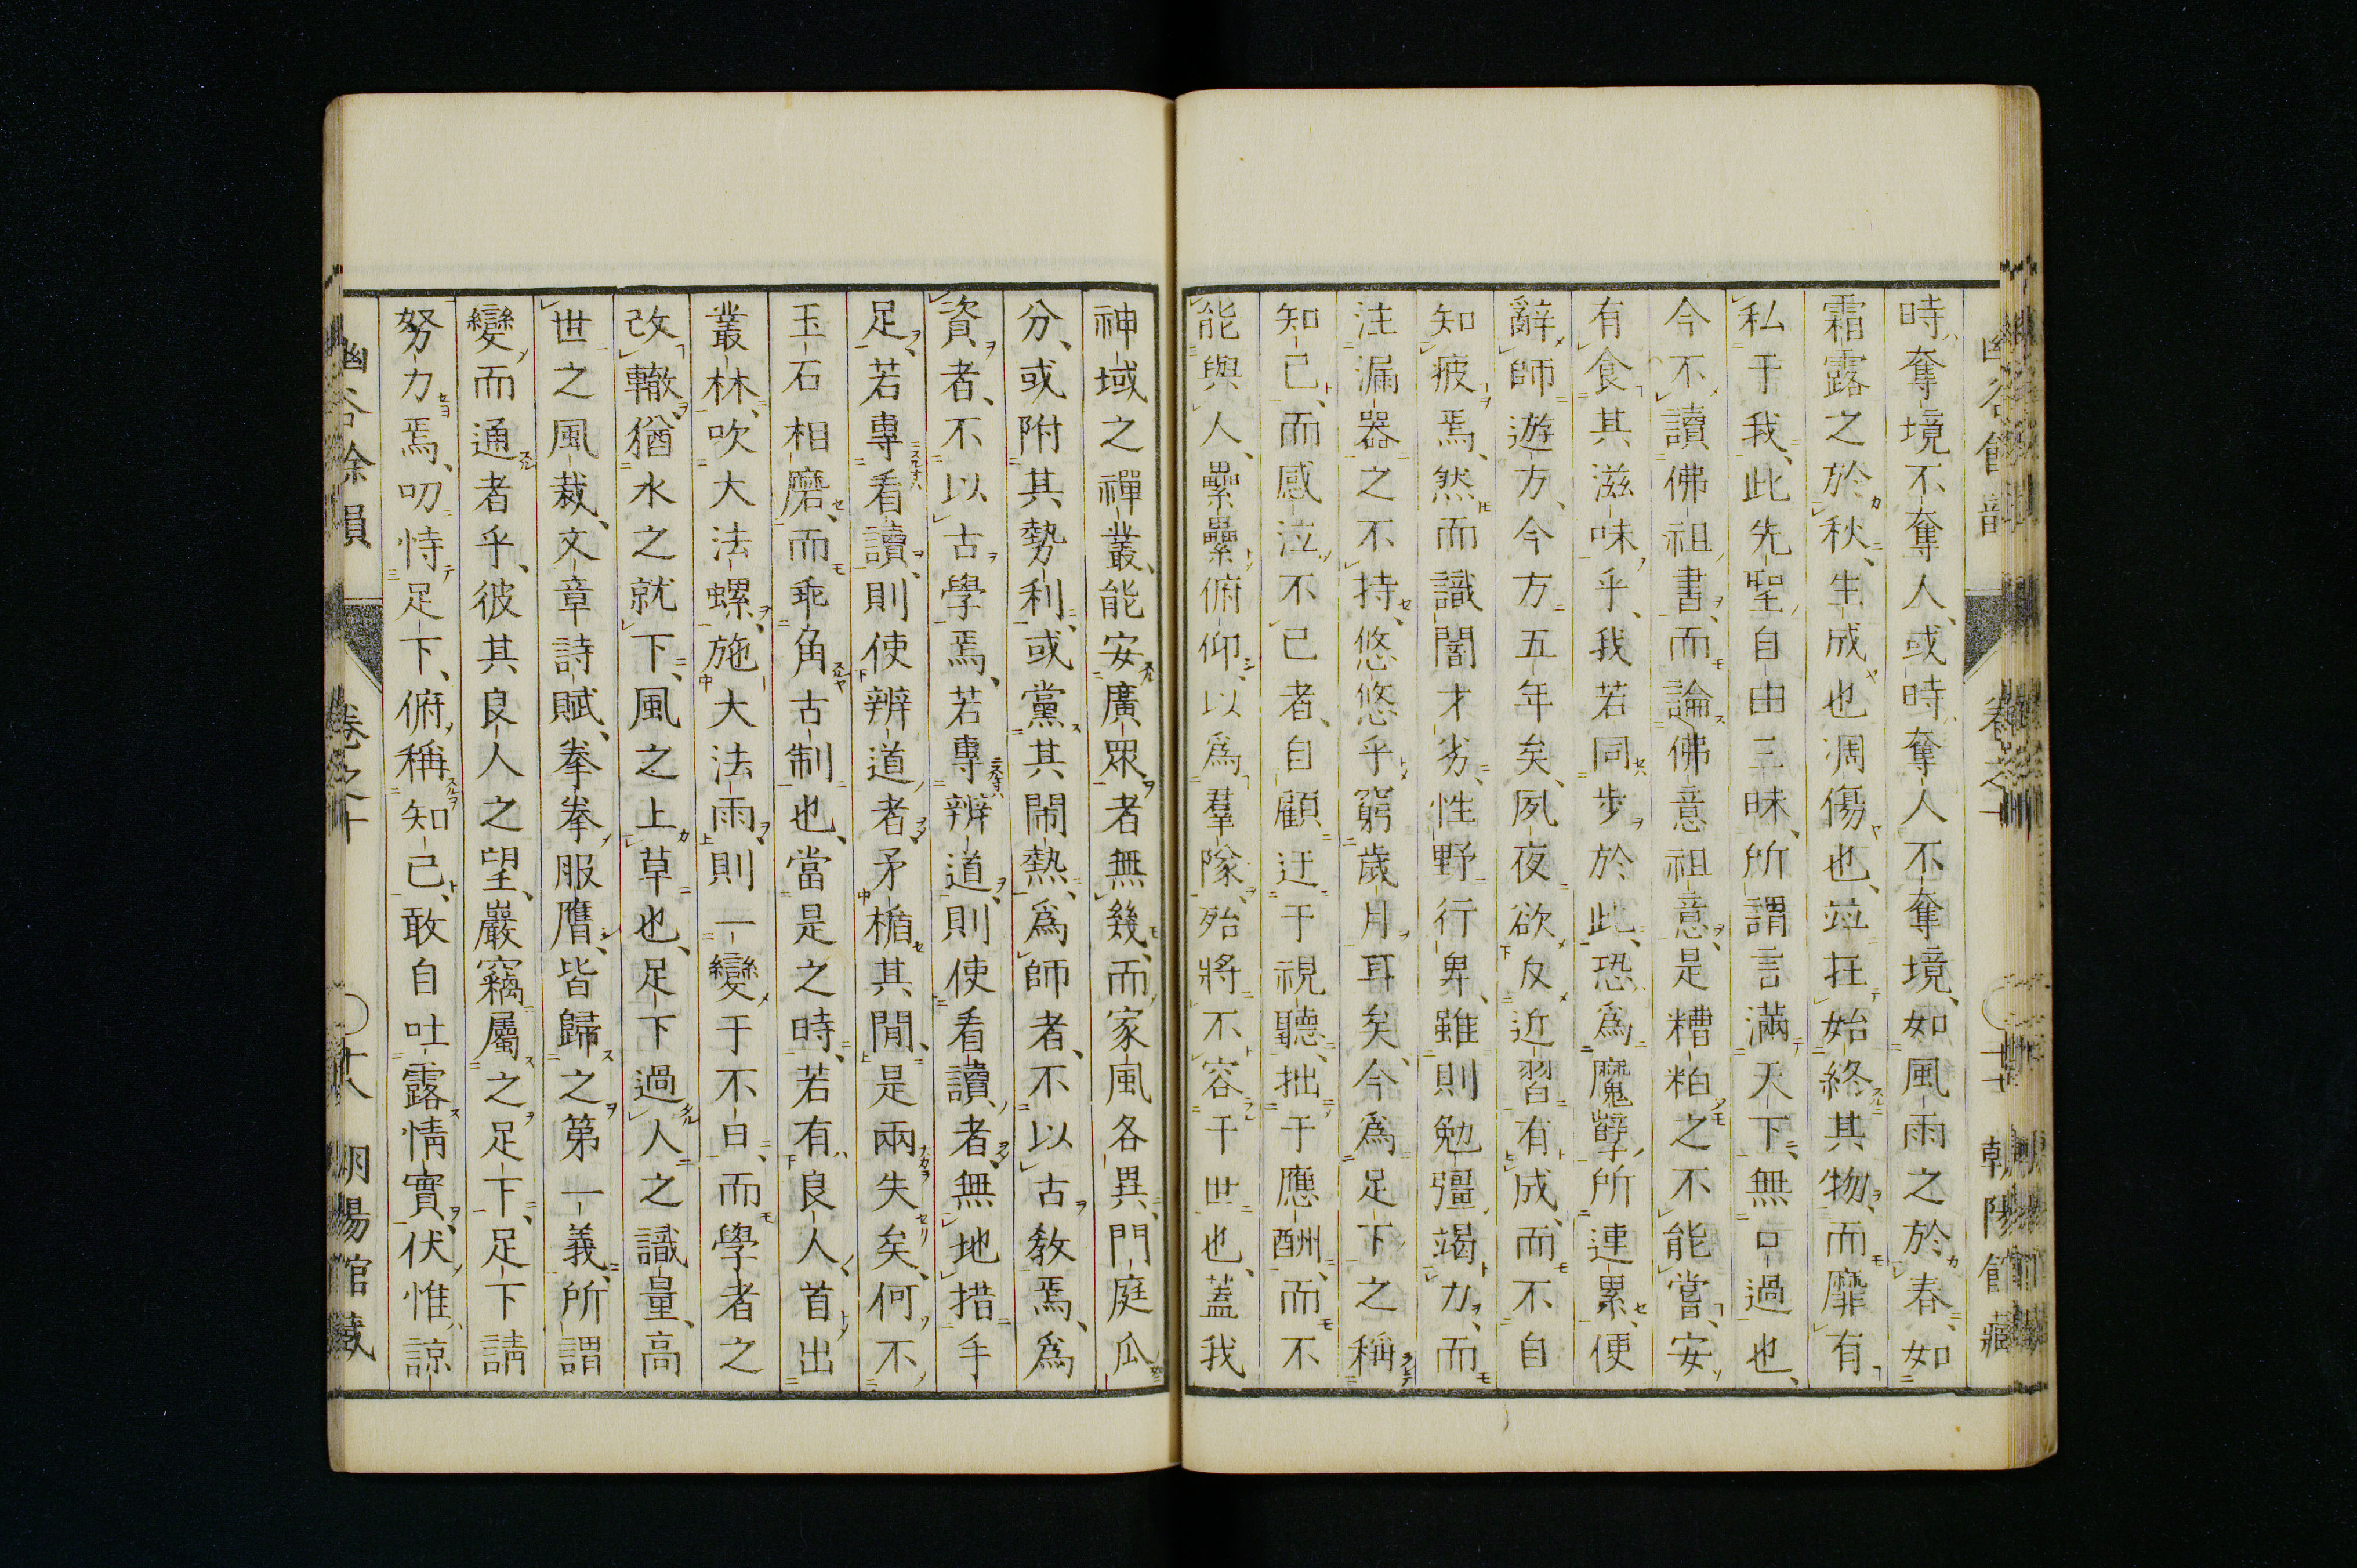 時、奪境不奪人、或時奪人不奪境、如風雨之於春、如
霜露之於秋、生成也凋傷也、竝在始終其物、而靡有
私于我、此先聖自由三昧、所謂言滿天下、無口過也、
今不讀佛祖書、而論佛意祖意、是糟粕之不能嘗、安
有食其滋味乎、我若同步於此、恐爲魔孽所連累、便
辭師遊方、今方五年矣、夙夜欲反近習有成、而不自
知疲焉、然而識闇才劣、性野行卑、雖則勉彊竭力、而
注漏器之不持、悠悠乎窮歲月耳矣、今爲足下之稱
知己、而感泣不已者、自顧迂于視聽、拙于應酬、而不
能與人、纍纍俯仰、以爲羣隊、殆將不容于世也、蓋我
神域之禪叢、能安廣眾者無幾、而家風各異、門庭瓜
分、或附其勢利、或黨其鬧熱、爲師者、不以古敎焉、爲
資者、不以古學焉、若專辨道、則使看讀者、無地措手
足、若專看讀、則使辨道者矛楯其閒、是兩失矣、何不
玉石相磨、而乖角古制也、當是之時、若有良人、首出
叢林、吹大法螺、施大法雨、則一變于不日、而學者之
改轍、猶水之就下、風之上草也、足下過人之識量、高
世之風裁、文章詩賦、拳拳服膺、皆歸之第一義、所謂
變而通者乎、彼其良人之望、巖竊屬之足下、足下請
努力焉、叨恃足下、俯稱知己、敢自吐露情實、伏惟諒
幽谷餘韻　卷之十　十八　朝陽館藏